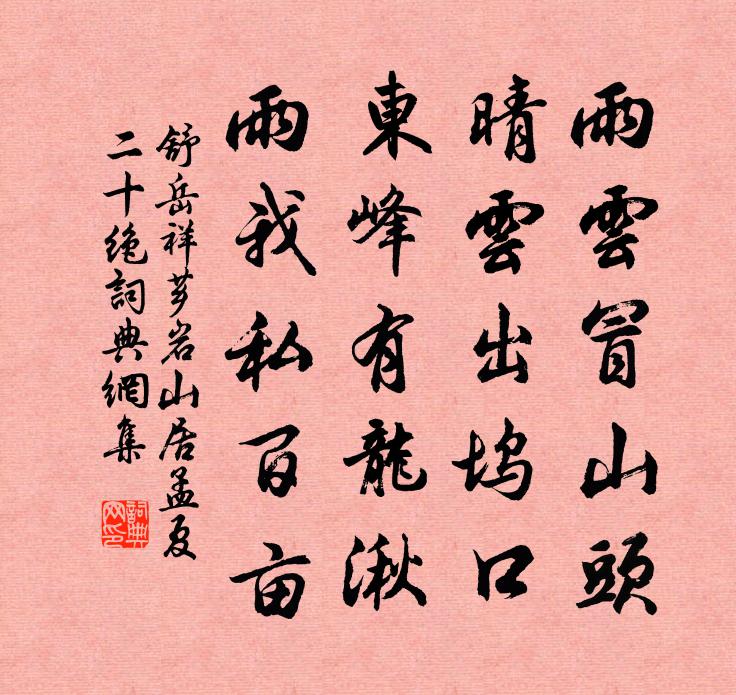 雨雲冒山頭
晴雲出坞口
東峰有龍湫
雨我私百亩
舒岳祥芗岩山居孟夏
二十绝詞典網集
詞典網印